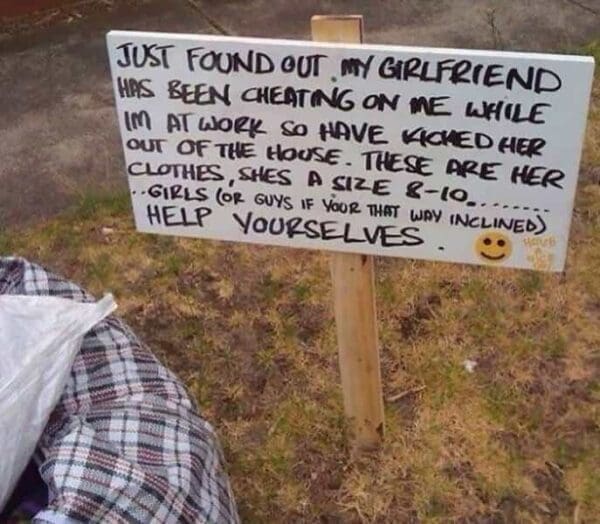 JUST FOUND OUT MY GIRLFRIEND
HAS BEEN CHEATING ON ME WHILE
IM AT WORK SO HAVE KICKED HER
OUT OF THE HOUSE. THESE ARE HER
CLOTHES, SHES A SIZE 8-10.........
..GIRLS (OR GUYS IF YOUR THAT WAY INCLINED)
HELP YOURSELVES.
HAVE
A